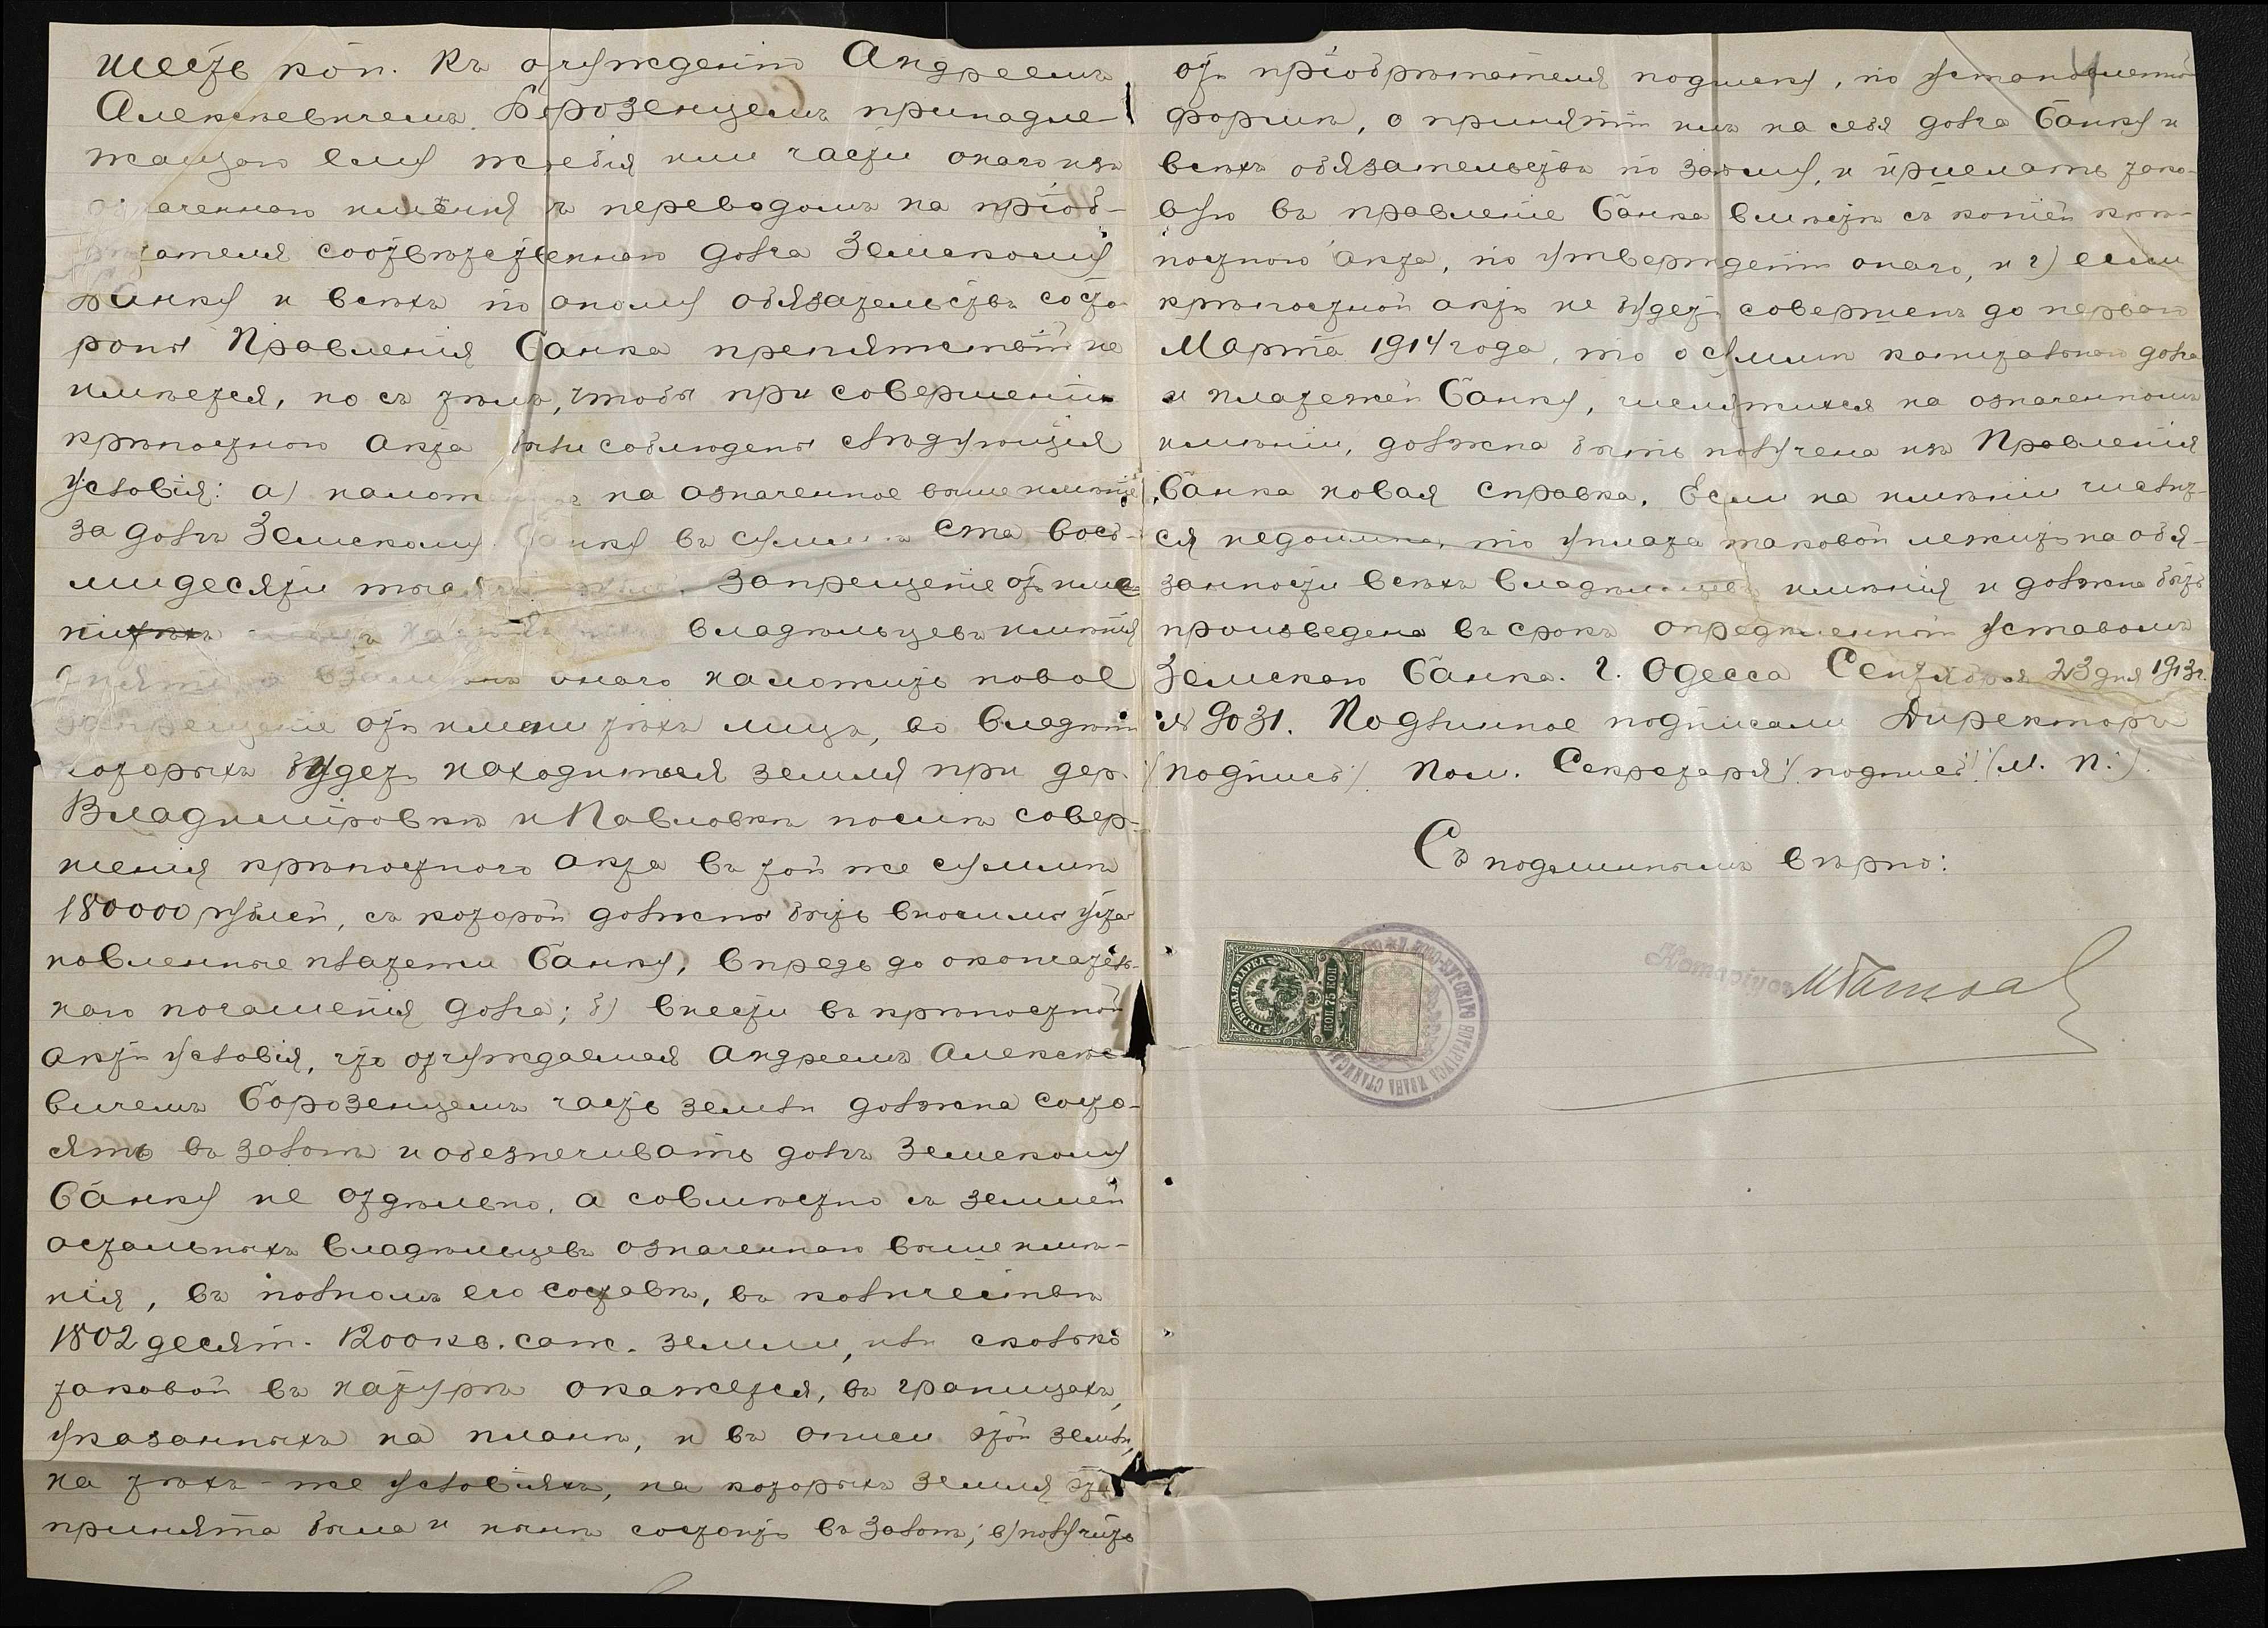 шесть коп. Къ отчужденію Андреемъ
Алексѣевичемъ Борозенцемъ принадле-
жащаго ему жребія или части онаго изъ
означеннаго имѣнія съ переводомъ на пріоб-
рѣтателя соотвѣтственнаго долга Земскому
Банку и всѣхъ по оному обязательствъ со сто-
роны Правленія Банка препятствій не
имѣется, но съ тѣмъ, чтобы при совершеніи
крѣпостного акта были соблюдены слѣдующія
условія: а) на означенное выше имѣніе
за долгъ Земскому Банку въ суммѣ ста вось-
мидесяти тысячъ запрещеніе отъ име-
ни владѣльцевъ имѣнія
снять, а взамѣнъ онаго наложить новое
запрещеніе отъ имени тѣхъ лицъ, во владѣніи
которыхъ будетъ находиться земля при дер.
Владиміровкѣ и Павловкѣ послѣ совер-
шенія крѣпостного акта въ той же суммѣ
180000 рублей, съ которой должны быть вносимы уста-
новленные платежи Банку, впредь до окончатель-
наго погашенія долга; б) внести въ крѣпостной
актъ условія, что отчуждаемая Андреемъ Алексѣе-
вичемъ Борозенцемъ часть земли должна состо-
ять въ залогѣ и обезпечивать долгъ Земскому
Банку не отдѣльно, а совмѣстно съ землей
остальныхъ владѣльцевъ означеннаго выше имѣ-
нія, въ полномъ его составѣ, въ количествѣ
1802 десят. 1200 кв. саж. земли, или сколько
таковой въ натурѣ окажется, въ границахъ,
указанныхъ на планѣ, и въ описи этой земли,
на тѣхъ-же условіяхъ, на которыхъ земля эта
принята была и нынѣ состоитъ въ залогѣ; в) получить
отъ пріобрѣтателя подписку, по установленной
формѣ, о принятіи имъ на себя долга Банку и
всѣхъ обязательствъ по займу, и прислать тако-
вую въ правленіе Банка вмѣстѣ съ копіей крѣ-
постного акта, по утвержденіи онаго, и г) если
крѣпостной актъ не будетъ совершенъ до перваго
Марта 1914 года, то о суммѣ капитальнаго долга
и платежей Банку, числящихся на означенномъ
имѣніи, должна быть получена изъ Правленія
Банка новая справка. Если на имѣніи числит-
ся недоимка, то уплата таковой лежитъ на обя-
занности всѣхъ владѣльцевъ имѣнія и должна быть
произведена въ срокъ опредѣленный уставомъ
Земскаго Банка. Г. Одесса Сентября 23 дня 1913 г.
№ 9031. Подлинное подписали Директоръ
(подпись) Пом. Секретаря (подпись) (М. П.).
Съ подлиннымъ вѣрно:
ГЕРБОВАЯ МАРКА
75 КОП
Нотаріусъ